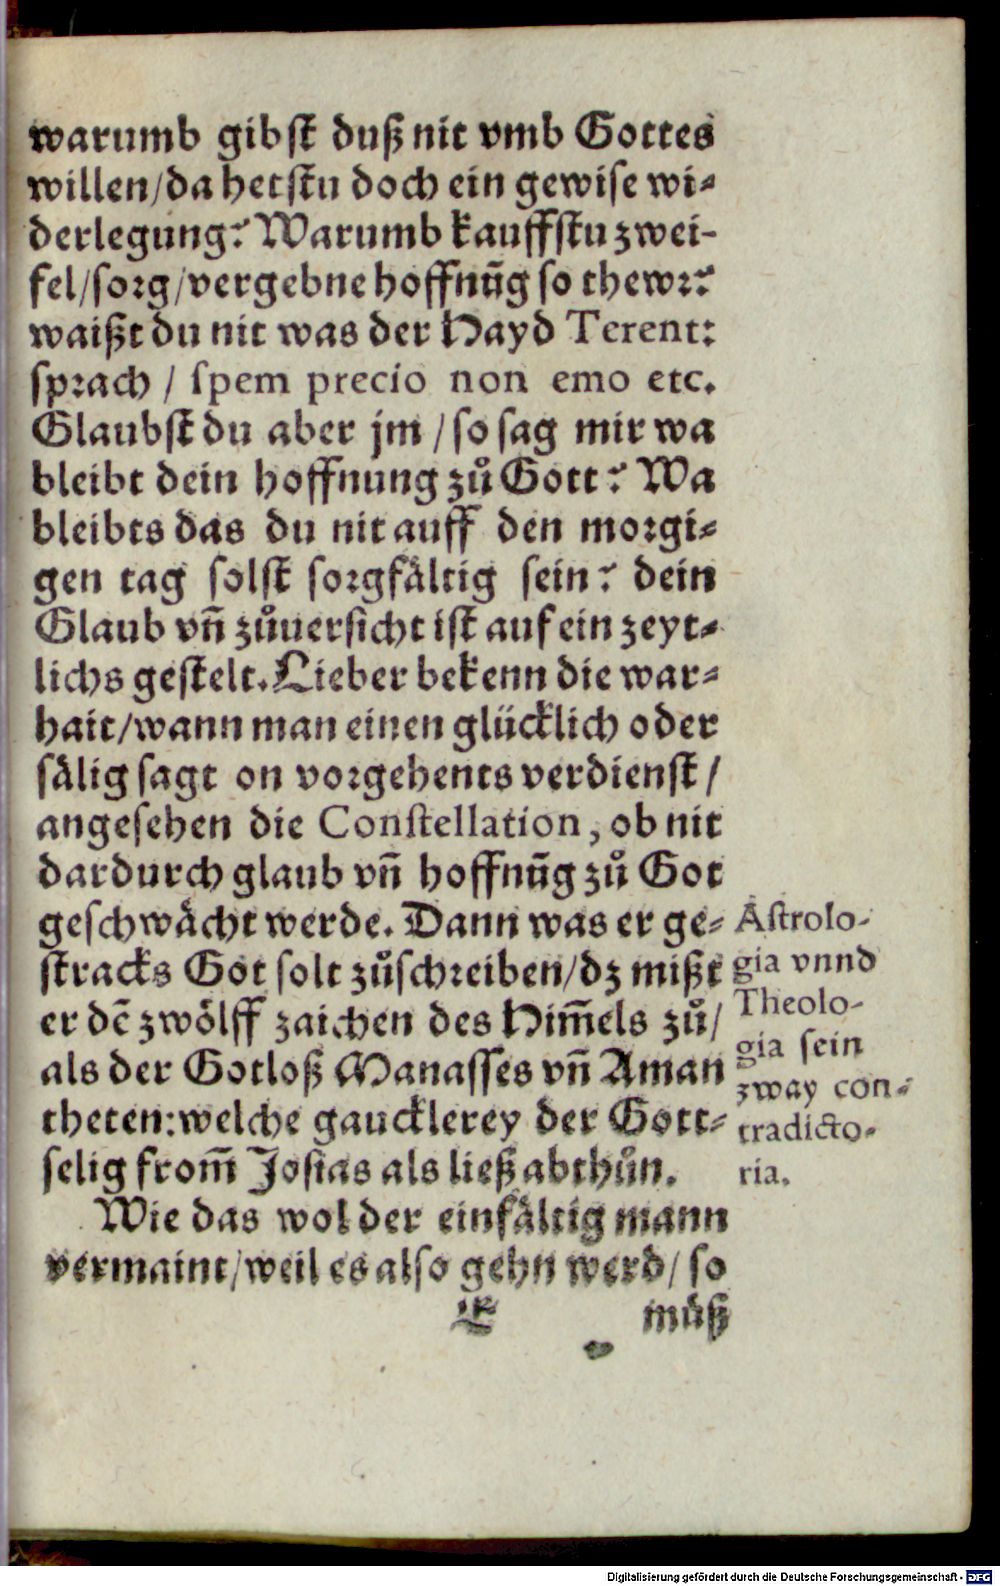 warumb gibst duß nit vmb Gottes
willen/da hetstu doch ein gewise wi-
derlegung? Warumb kauffstu zwei-
fel/sorg/vergebne hoffnūg so thewr?
waißt du nit was der Hayd Terent:
sprach / spem precio non emo etc.
Glaubst du aber jm / so sag mir wa
bleibt dein hoffnung zů Gott? Wa
bleibts das du nit auff den morgi-
gen tag solst sorgfältig sein? dein
Glaub vñ zůuersicht ist auf ein zeyt-
lichs gestelt. Lieber bekenn die war-
hait/wann man einen glücklich oder
sälig sagt on vorgehents verdienst /
angesehen die Constellation, ob nit
dardurch glaub vñ hoffnūg zů Got
geschwächt werde. Dann was er ge-
stracks Got solt zůschreiben/dz mißt
er dē zwölff zaichen des Him̄els zů/
als der Gotloß Manasses vñ Aman
theten: welche gaucklerey der Gott-
selig from̄ Josias als ließ abthůn.
Wie das wol der einfältig mann
vermaint/weil es also gehn werd/ so
E müß
Astrolo-
gia vnnd
Theolo-
gia sein
zway con-
tradicto-
ria.
Digitalisierung gefördert durch die Deutsche Forschungsgemeinschaft - DFG